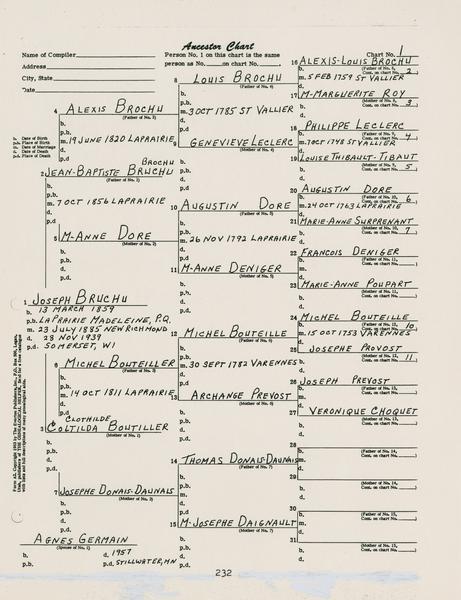 Ancestor Chart
Name of Compiler
Address
City, State
Date
Person No. 1 on this chart is the same
person as No. on chart No.
Chart No. 1
b. Date of Birth
p.b. Place of Birth
m. Date of Marriage
d. Date of Death
p.d. Place of Death
1 JOSEPH BRUCHU
b. 13 MARCH 1859
p.b. LAPRARIE MADELEINE, P.Q.
m. 23 JULY 1885 NEW RICHMOND
d. 28 NOV 1939
p.d. SOMERSET, WI
AGNES GERMAIN
(Spouse of No. 1)
b.
d. 1957
p.b.
p.d. STILLWATER, MN
BROCHU
2 JEAN-BAPTISTE BRUCHU
(Father of No. 1)
b.
p.b.
m. 7 OCT 1856 LAPRAIRIE
d.
p.d.
CLOTHILDE
3 COLTILDA BOUTILLER
(Mother of No. 1)
b.
p.b.
d.
p.d.
4 ALEXIS BROCHU
(Father of No. 2)
b.
p.b.
m. 19 JUNE 1820 LAPRAIRIE
d.
p.d.
5 M-ANNE DORE
(Mother of No. 2)
b.
p.b.
d.
p.d.
6 MICHEL BOUTEILLER
(Father of No. 3)
b.
p.b.
m. 14 OCT 1811 LAPRAIRIE
d.
p.d
7 JOSEPHE DONAIS-DAUNAIS
(Mother of No. 3)
b.
p.b.
d.
p.d.
8 LOUIS BROCHU
(Father of No. 4)
b.
p.b.
m. 3 OCT 1785 ST VALLIER
d.
p.d.
9 GENEVIEVE LECLERC
(Mother of No. 4)
b.
p.b.
d.
p.d.
10 AUGUSTIN DORE
(Father of No. 5)
b.
p.b.
m. 26 NOV 1792 LAPRAIRIE
d.
p.d.
11 M-ANNE DENIGER
(Mother of No. 5)
b.
p.b.
d.
p.d.
12 MICHEL BOUTEILLE
(Father of No. 6)
b.
p.b.
m. 30 SEPT 1782 VARENNES
d.
p.d.
13 ARCHANGE PREVOST
(Mother of No. 6)
b.
p.b.
d.
p.d.
14 THOMAS DONAIS-DAUNAIS
(Father of No. 7)
b.
p.b.
m.
d.
p.d.
15 M-JOSEPHE DAIGNAULT
(Mother of No. 7)
b.
p.b.
d.
p.d.
16 ALEXIS-LOUIS BROCHU
(Father of No. 8, Cont. on chart No. 2)
m. 5 FEB 1759 ST VALLIER
17 M-MARGUERITE ROY
(Mother of No. 8, Cont. on chart No. 3)
18 PHILIPPE LECLERC
(Father of No. 9, Cont. on chart No. 4)
m. 7 OCT 1748 ST VALLIER
19 LOUISE THIBAULT-TIBAUT
(Mother of No. 9, Cont. on chart No. 5)
20 AUGUSTIN DORE
(Father of No. 10, Cont. on chart No. 6)
m. 24 OCT 1763 LAPRAIRIE
21 MARIE-ANNE SURPRENANT
(Mother of No. 10, Cont. on chart No. 7)
22 FRANCOIS DENIGER
(Father of No. 11, Cont. on chart No.
23 MARIE-ANNE POUPART
(Mother of No. 11, Cont. on chart No.
24 MICHEL BOUTEILLE
(Father of No. 12, Cont. on chart No. 10
m. 15 OCT 1753 VARENNES
25 JOSEPHE PROVOST
(Mother of No. 12, Cont. on chart No. 11
26 JOSEPH PREVOST
(Father of No. 13, Cont. on chart No.
27 VERONIQUE CHOQUET
(Mother of No. 13, Cont. on chart No.
28
(Father of No. 14, Cont. on chart No.
29
(Mother of No. 14, Cont. on chart No.
30
(Father of No. 15, Cont. on chart No.
31
(Mother of No. 15, Cont. on chart No.
232